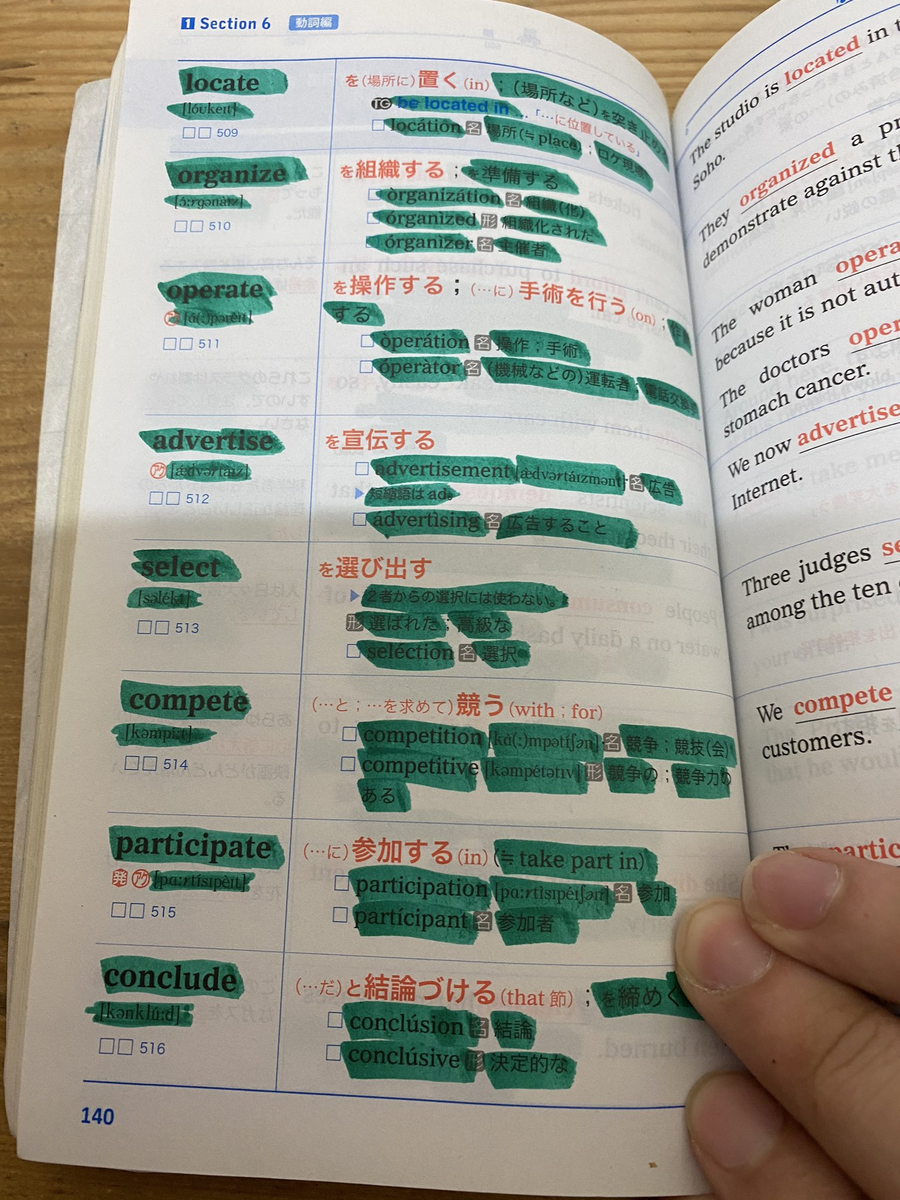 1 Section 6 動詞編
locate
[lóukeit]
□□ 509
を(場所に)置く(in)；(場所など)を突き止め
TG be located in 「…に位置している」
□ locátion 名 場所(≒ place)；ロケ現場
organize
[ɔ́ːrɡənàɪz]
□□ 510
を組織する；を準備する
□ òrganizátion 名 組織(化)
□ órganìzed 形 組織化された
□ órganìzer 名 主催者
operate
ア [ɑ́(ː)pərèɪt]
□□ 511
を操作する；(…に)手術を行う(on)；作
する
□ òperátion 名 操作；手術
□ óperàtor 名 (機械などの)運転者；電話交換
advertise
アク [ǽdvərtàɪz]
□□ 512
を宣伝する
□ advertisement [ædvərtáɪzmənt] 名 広告
▶ 短縮語は ad。
□ advertising 名 広告すること
select
[səlékt]
□□ 513
を選び出す
▶ 2者からの選択には使わない。
形 選ばれた；高級な
□ seléction 名 選択
compete
[kəmpíːt]
□□ 514
(…と；…を求めて)競う(with；for)
□ competition [kɑ̀(ː)mpətíʃən] 名 競争；競技(会)
□ competitive [kəmpétətɪv] 形 競争の；競争力の
ある
participate
発 アク [pɑːrtísɪpèɪt]
□□ 515
(…に)参加する(in)(≒ take part in)
□ participation [pɑːrtìsɪpéɪʃən] 名 参加
□ partícipant 名 参加者
conclude
[kənklúːd]
□□ 516
(…だ)と結論づける(that 節)；を締めく
□ conclúsion 名 結論
□ conclúsive 形 決定的な
140
The studio is located in
Soho.
They organized a
demonstrate against
The woman
because it is not
The doctors
stomach cancer.
We now
Internet.
Three judges
among the ten
We compete
customers.